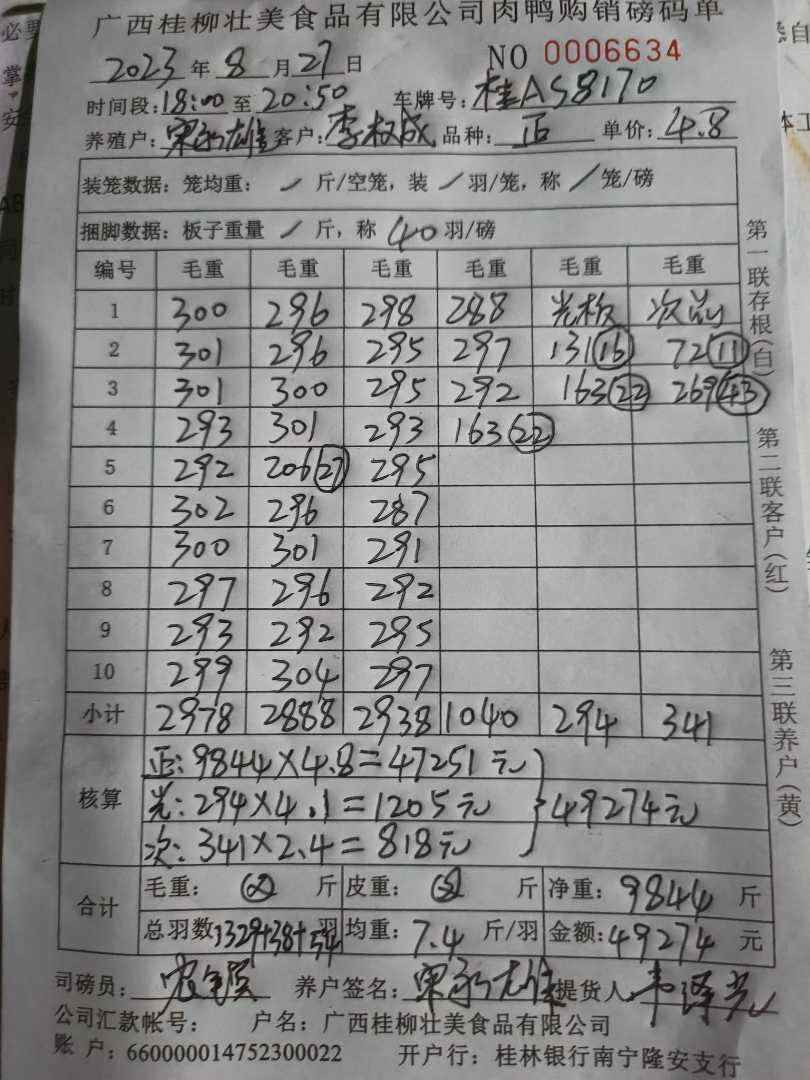 广西桂柳壮美食品有限公司肉鸭购销磅码单
2023年8月27日 NO 0006634
时间段:18:00至20:50 车牌号:桂AS8170
养殖户: 客户:李权成 品种:正 单价:4.8
装笼数据:笼均重:/斤/空笼,装/羽/笼,称/笼/磅
捆脚数据:板子重量/斤,称40羽/磅
编号 毛重 毛重 毛重 毛重 毛重 毛重
1 300 296 298 288 光板 次品
2 301 296 295 297 131(16) 72(11)
3 301 300 295 292 163(22) 269(43)
4 293 301 293 163(22)
5 292 206(27) 295
6 302 296 287
7 300 301 291
8 297 296 292
9 293 292 295
10 299 304 297
小计 2978 2888 2938 1040 294 341
核算
正:9844×4.8=47251元
光:294×4.1=1205元
次:341×2.4=818元
}49274元
合计
毛重: 斤 皮重: 斤 净重:9844斤
总羽数1329+38+54羽 均重:7.4斤/羽 金额:49274元
司磅员: 养户签名: 提货人:
公司汇款帐号: 户名:广西桂柳壮美食品有限公司
账 户:660000014752300022 开户行:桂林银行南宁隆安支行
第一联存根(白)
第二联客户(红)
第三联养户(黄)